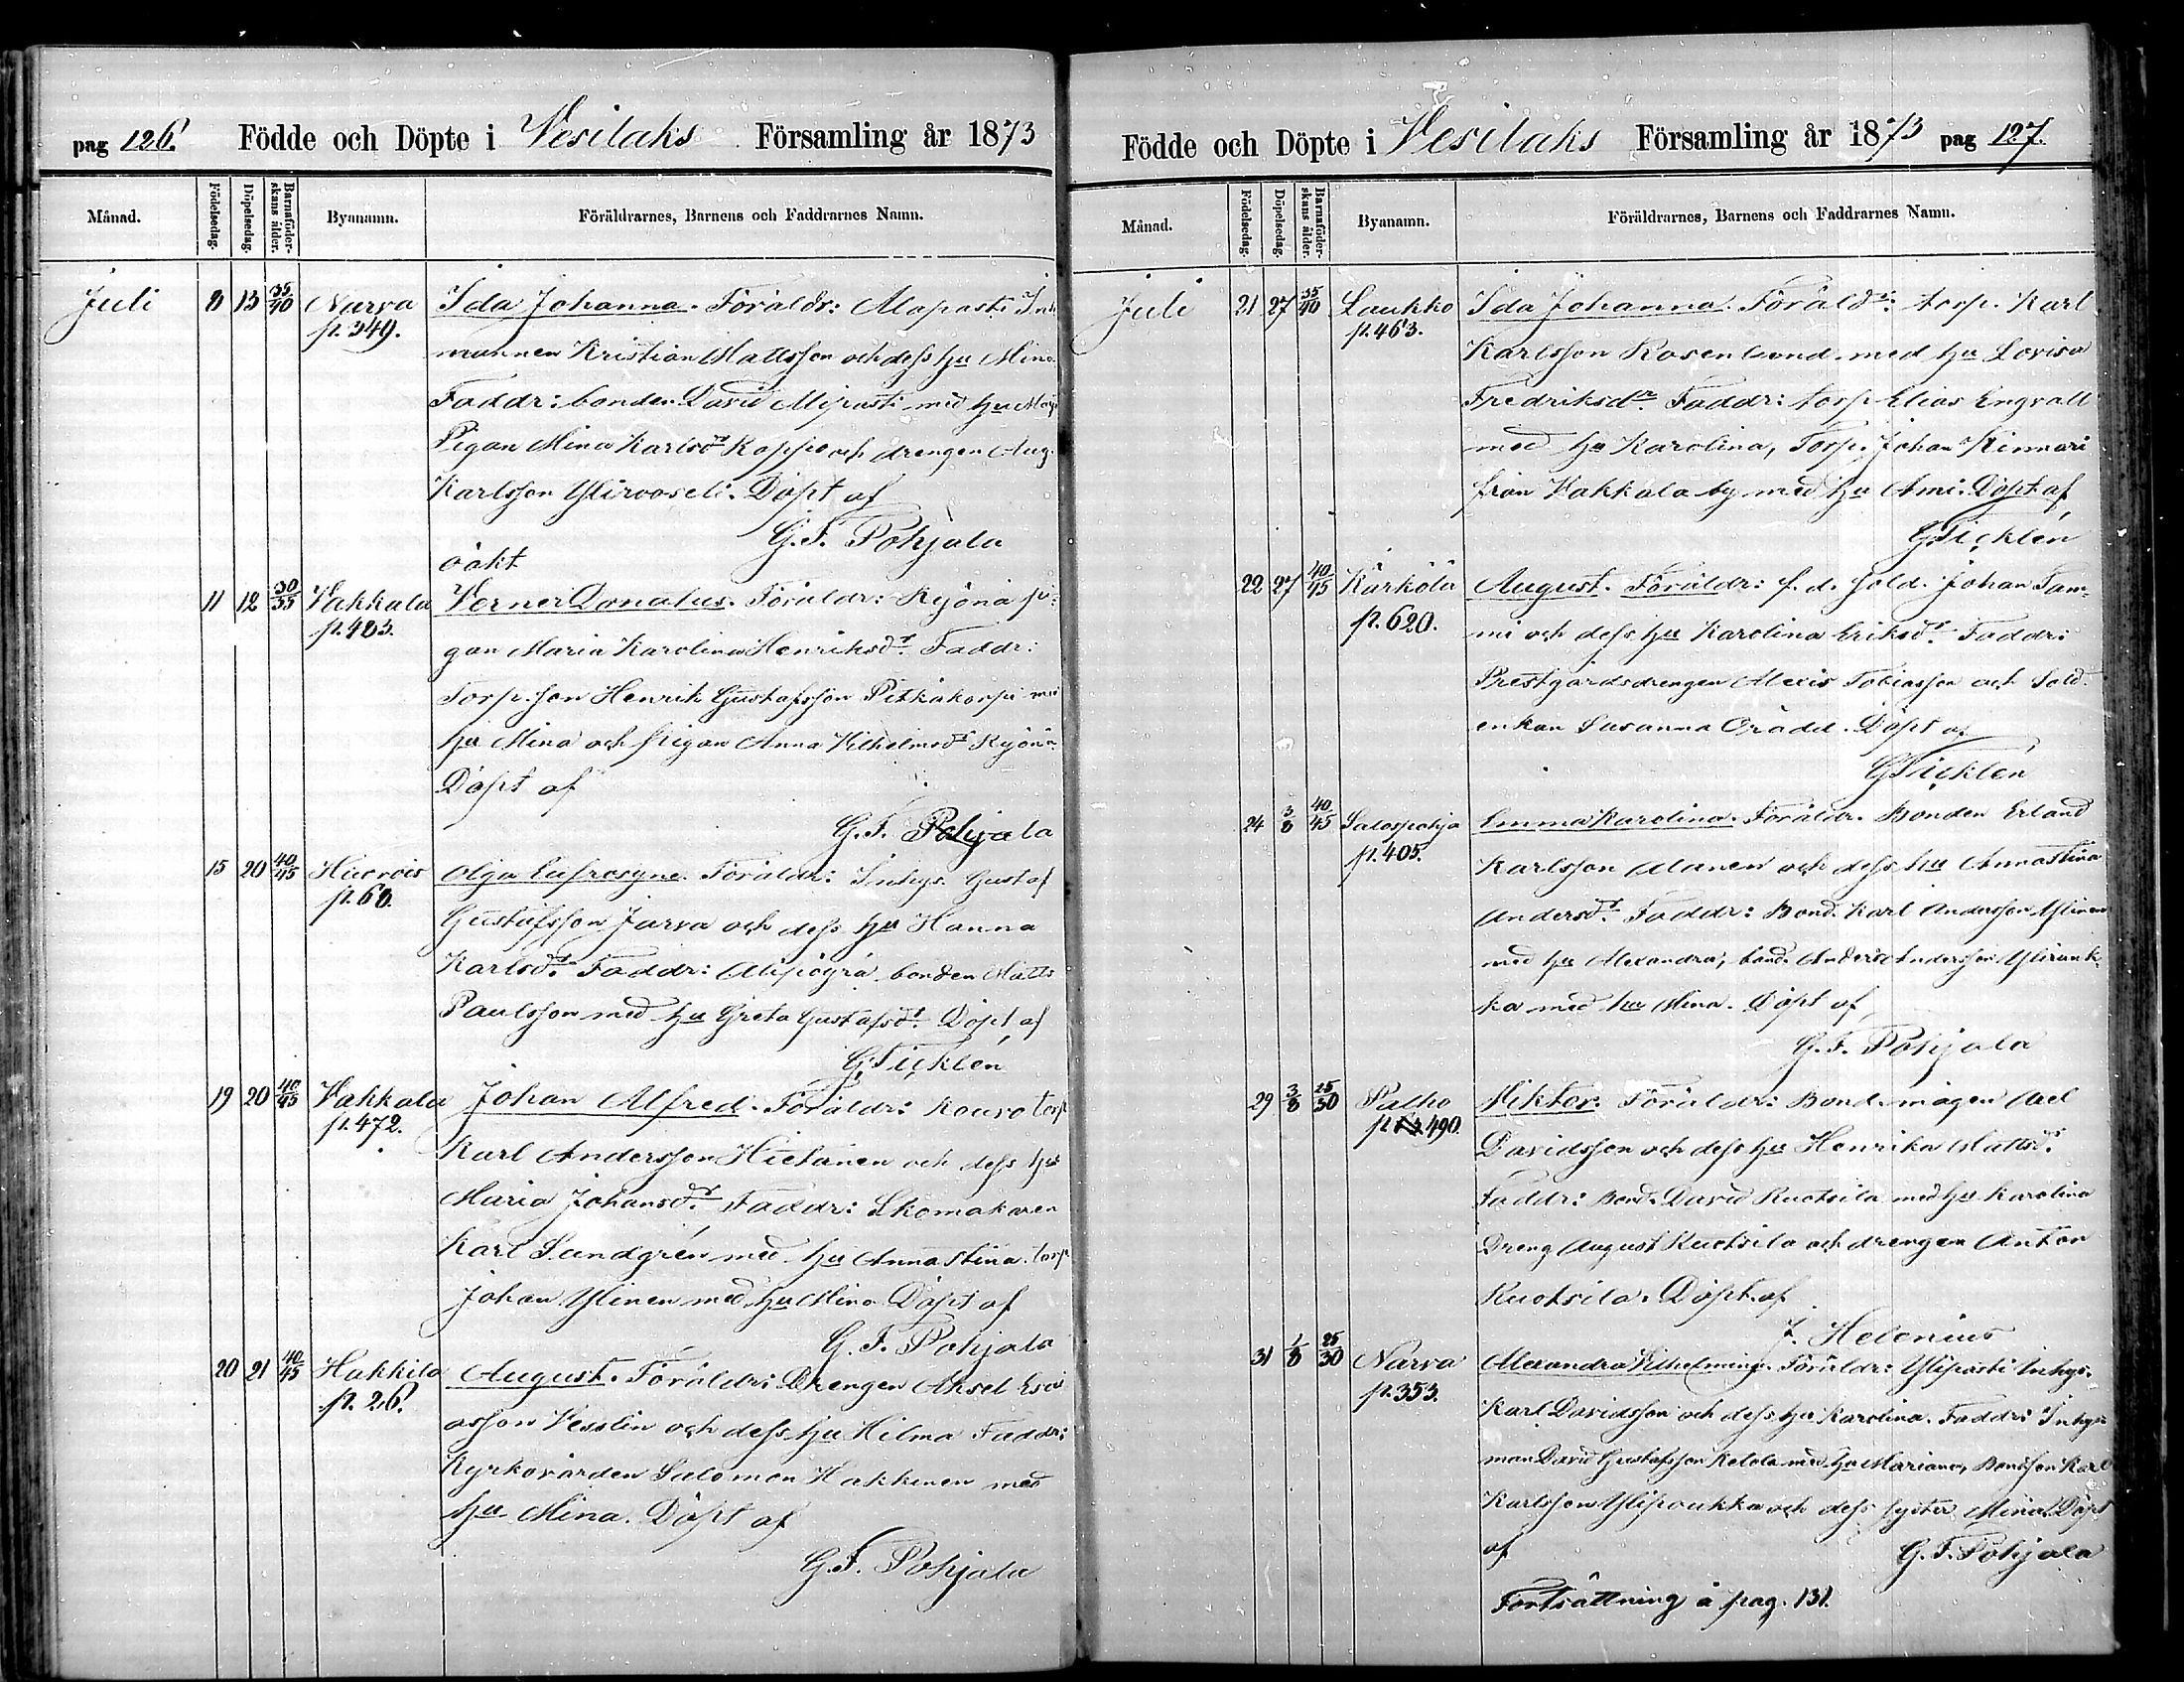 pag 126. Födde och Döpte i Vesilaks Församling år 1873
Månad. Födelsedag. Döpelsedag. Barnaföder-skans ålder. Byanamn. Föräldrarnes, Barnens och Faddrarnes Namn.
Juli 8 13 35/40 Narva Ida Johanna. Föräldr: Alapasti Inh.
p. 349. mannen Kristian Mattsson och dess hu Mina.
Faddr: bonden David Alipasti med hu Maja
Pigan Mina Karlsdr Koppo och drengen Aug.
Karlsson Döpt af
G. F. Pohjala
oäkt
11 12 30/35 Vakkala Verner Donatus. Föräldr: Kyönä pi-
p. 483. gan Maria Karolina Henriksdr. Faddr:
Torp. son Henrik Gustafsson Pitkäkorpi med
hu Mina och pigan Anna Vilhelmsdr Kyönä.
Döpt af
G. F. Pohjala
15 20 40/45 Hinrois Olga Eufrosyne. Föräldr: Inhys. Gustaf
p. 60. Gustafsson Jarva och dess hu Hanna
Karlsdr. Faddr: Alipöyrä bonden Matts
Paulsson med hu Greta Gustafsdr. Döpt af
G. Ticklén
19 20 40/45 Vakkala Johan Alfred. Föräldr: Kouvo torp
p. 472. Karl Andersson Hietanen och dess hu
Maria Johansdr. Faddr: Skomakaren
Karl Sundgrén med hu Anna Stina. torp
Johan Ylinen med hu Mina Döpt af
G. F. Pohjala
20 21 40/45 Hakkila August. Föräldr: Drengen Aksel Esai
p. 26. asson Vesslin och dess hu Hilma Faddr:
Kyrkovärden Salomon Hakkinen med
hu Mina. Döpt af
G. F. Pohjala
Födde och Döpte i Vesilaks Församling år 1873 pag 127.
Månad. Födelsedag. Döpelsedag. Barnaföder-skans ålder. Byanamn. Föräldrarnes, Barnens och Faddrarnes Namn.
Juli 21 27 35/40 Laukko Ida Johanna. Föräldr: torp. Karl
p. 463. Karlsson Rosenlund med hu Lovisa
Fredriksdr. Faddr: torp Elias Engvall
med hu Karolina, Torp. Johan Kinnari
från Vakkala by med hu Ami. Döpt af
G. Ticklén
22 27 40/45 Kärkölä August. Föräldr: f. d. sold. Johan Tam-
p. 620. mi och dess hu Karolina Eriksdr. Faddr:
Prestgårdsdrengen Alexis Tobiasson och Sold.
enkan Susanna Orädd. Döpt af
G. Ticklén
24 3/8 40/45 Salospohja Emma Karolina. Föräldr. Bonden Erland
p. 405. Karlsson Alanen och dess hu Annastina
Andersdr. Faddr: Bond. Karl Andersson Ylinen
med hu Alexandra, bond. Anders Andersson Ylirank-
ka med hu Mina. Döpt af
G. F. Pohjala
29 3/8 25/30 Palho Viktor. Föräldr: Bond. mågen Axel
p. 490. Davidsson och dess hu Henrika Mattsdr.
Faddr: Bond. David Ruotsila med hu Karolina
Dreng August Ruotsila och drengen Anton
Ruotsila. Döpt af
Helenius
31 1/8 25/30 Narva Alexandra Vilhelmina. Föräldr: Ylipasti Inhys.
p. 353. Karl Davidsson och dess hu Karolina. Faddr: Inhys
man David Gustafsson Ketola med hu Mariana, Bondson Karl
Karlsson Ylipoukka och dess syster Mina. Döpt
af G. F. Pohjala
Fortsättning å pag. 131.